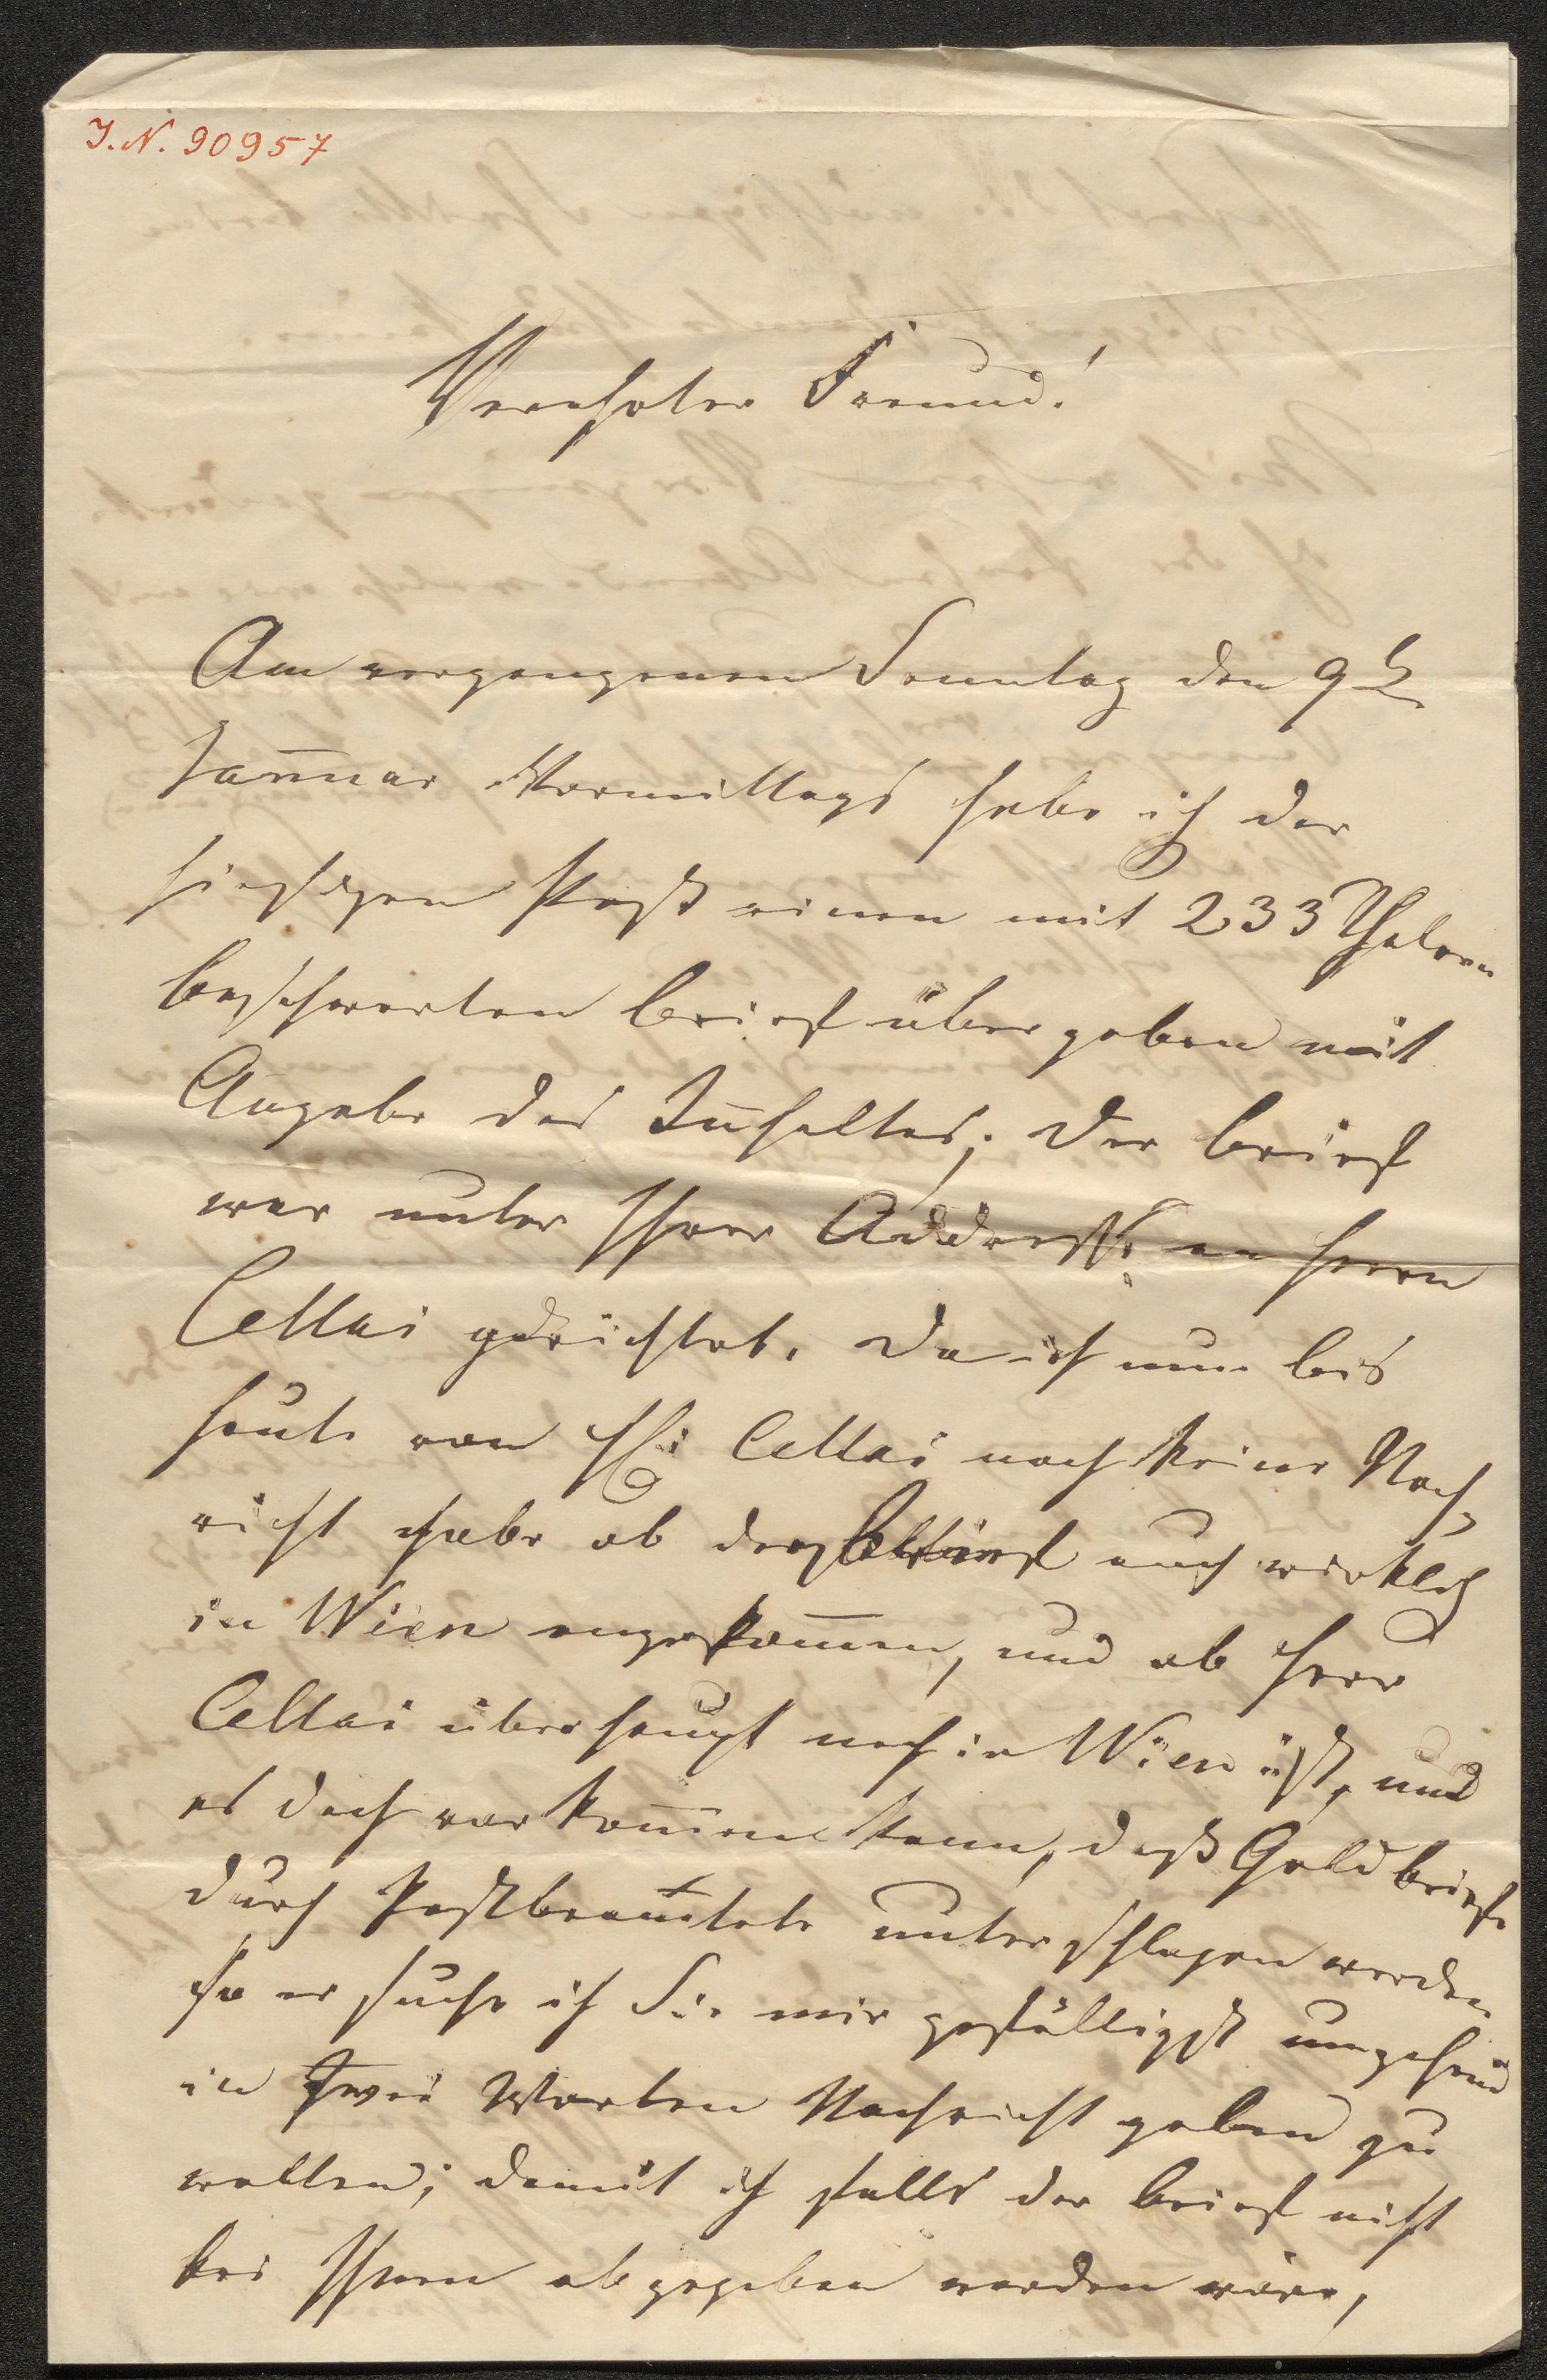 J. N. 90957
Verehrter Freund!
Am vergangenen Sonntag den 9t
Januar Vormittags habe ich der
hiesigen Post einen mit 233 Thalern
beschwerten Brief übergeben mit
Angabe des Inhaltes; der Brief
war unter Ihrer Addresse an Herrn
Cellai gerichtet. Da ich nun bis
heute von H: Cellai noch keine Nach-
richt habe ob der Brief auch wirklich
in Wien angekom̅en, und ob Herr
Cellai überhaupt noch in Wien ist, und
es doch vorkom̅en kann, daß Geldbriefe
durch Postbeamtete unterschlagen werden
so ersuche ich Sie mir gefälligst umgehend
in zwei Worten Nachricht geben zu
wollen; damit ich falls der Brief nicht
bei Ihnen abgegeben worden wäre,